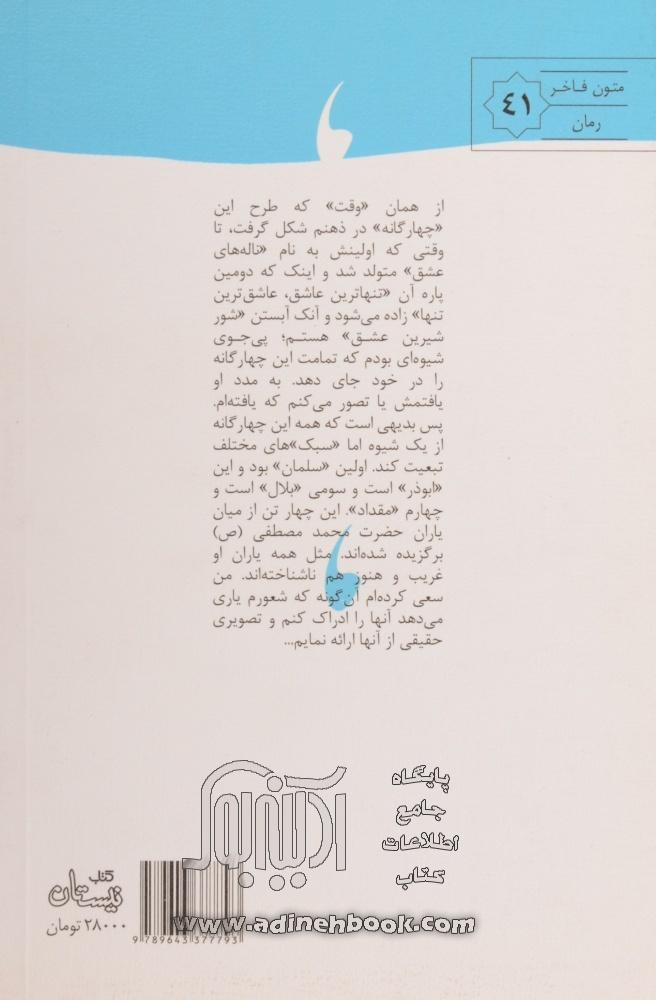 متون فاخر
۴۱
رمان
از همان «وقت» که طرح این
«چهارگانه» در ذهنم شکل گرفت، تا
وقتی که اولینش به نام «ناله‌های
عشق» متولد شد و اینک که دومین
پاره آن «تنهاترین عاشق، عاشق‌ترین
تنها» زاده می‌شود و آنک آبستن «شور
شیرین عشق» هستم؛ پی‌جوی
شیوه‌ای بودم که تمامت این چهارگانه
را در خود جای دهد. به مدد او
یافتمش یا تصور می‌کنم که یافته‌ام.
پس بدیهی است که همه این چهارگانه
از یک شیوه اما «سبک»های مختلف
تبعیت کند. اولین «سلمان» بود و این
«ابوذر» است و سومی «بلال» است و
چهارم «مقداد». این چهار تن از میان
یاران حضرت محمد مصطفی (ص)
برگزیده شده‌اند. مثل همه یاران او
غریب و هنوز هم ناشناخته‌اند. من
سعی کرده‌ام آن‌گونه که شعورم یاری
می‌دهد آنها را ادراک کنم و تصویری
حقیقی از آنها ارائه نمایم...
پایگاه
جامع
اطلاعات
کتاب
آدینه‌بوک
کتاب
نیستان
۲۸۰۰۰ تومان
www.adinehbook.com
9 789643 377793